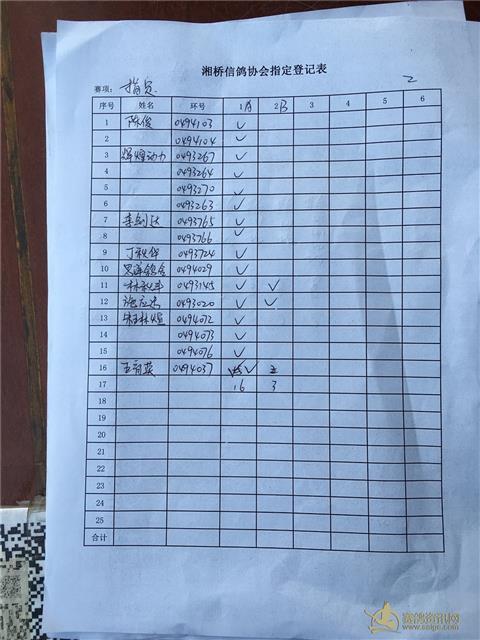 湘桥信鸽协会指定登记表
赛项： 指定 2
序号 姓名 环号 1A 2B 3 4 5 6
1 陈俊 0494103 ✓
2 0494104 ✓
3 辉煌动力 0493267 ✓
4 0493264 ✓
5 0493270 ✓
6 0493263 ✓
7 0493765 ✓
8 0493766 ✓
9 丁秋伴 0493724 ✓
10 0494029 ✓
11 林秋丰 0493145 ✓ ✓
12 0493020 ✓ ✓
13 0494072 ✓
14 0494073 ✓
15 0494076 ✓
16 0494037 ✓
17 16 3
18
19
20
21
22
23
24
25
合计
赛鸽资讯网
www.saige.com